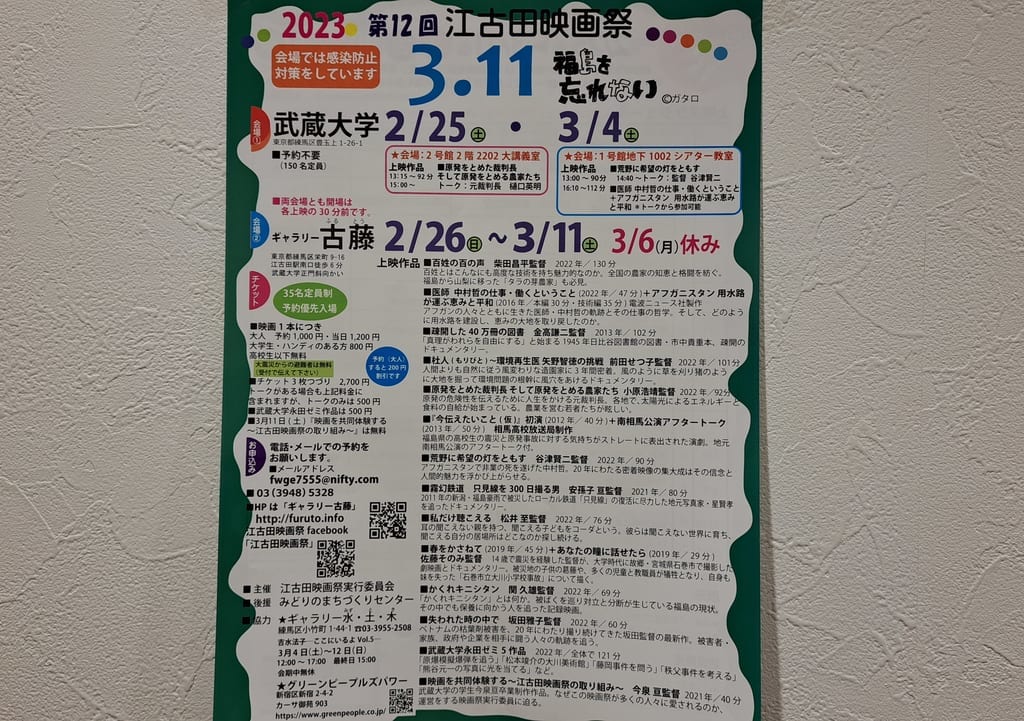 2023 第12回 江古田映画祭
会場では感染防止
対策をしています
3.11
福島を
忘れない
©ガタロ
会場①
武蔵大学 2/25㊏ ・ 3/4㊏
東京都練馬区豊玉上 1-26-1
■予約不要
(150名定員)
★会場:2号館2階2202大講義室
上映作品 ■原発をとめた裁判長
13:15～92分 そして原発をとめる農家たち
15:00～ トーク:元裁判長 樋口英明
★会場:1号館地下1002シアター教室
上映作品 ■荒野に希望の灯をともす
13:00～90分 14:40～トーク:監督 谷津賢二
16:10～112分 ■医師 中村哲の仕事・働くということ
+アフガニスタン 用水路が運ぶ恵み
と平和 ＊トークから参加可能
■両会場とも開場は
各上映の30分前です。
会場②
ギャラリー古藤 2/26㊐～3/11㊏ 3/6(月)休み
ふる とう
東京都練馬区栄町 9-16
江古田駅南口徒歩6分
武蔵大学正門斜向かい
チケット
35名定員制
予約優先入場
■映画1本につき
大人 予約1,000円・当日1,200円
大学生・ハンディのある方 800円
高校生以下無料
大震災からの避難者は無料
(受付で伝えて下さい)
予約(大人)
すると200円
割引です
■チケット3枚つづり 2,700円
トークがある場合も上記料金に
含まれますが、トークのみは500円
■武蔵大学永田ゼミ作品は500円
■3月11日(土)『映画を共同体験する
～江古田映画祭の取り組み～』は無料
お申込み
電話・メールでの予約を
お願いします。
■メールアドレス
fwge7555@nifty.com
■03(3948)5328
■HPは「ギャラリー古藤」
http://furuto.info
江古田映画祭 facebook
「江古田映画祭」
■主催 江古田映画祭実行委員会
■後援 みどりのまちづくりセンター
■協力 ★ギャラリー水・土・木
みず・ど・もく
練馬区小竹町1-44-1 ☎03-3955-2508
吉水法子―ここにいるよ Vol.5―
3月4日(土)～12日(日)
12:00～17:00 最終日15:00
会期中無休
★グリーンピープルズパワー
新宿区新宿2-4-2
カーサ御苑 903
https://www.greenpeople.co.jp/
上映作品
■百姓の百の声 柴田昌平監督 2022年/130分
百姓とはこんなにも高度な技術を持ち魅力的なのか。全国の農家の知恵と格闘を紡ぐ。
福島から山梨に移った「タラの芽農家」も必見。
■医師 中村哲の仕事・働くということ(2022年/47分)+アフガニスタン 用水路
が運ぶ恵みと平和(2016年/本編30分・技術編35分)電波ニュース社製作
アフガンの人々とともに生きた医師・中村哲の軌跡とその仕事の哲学。そして、どのよう
に用水路を建設し、恵みの大地を取り戻したのか。
■疎開した40万冊の図書 金高謙二監督 2013年/102分
「真理がわれらを自由にする」と始まる1945年日比谷図書館の図書・市中貴重本、疎開の
ドキュメンタリー。
■杜人(もりびと)～環境再生医 矢野智徳の挑戦 前田せつ子監督 2022年/101分
人間よりも自然に従う風変わりな造園家に3年間密着。風のように草を刈り猪のよう
に大地を掘って環境問題の根幹に風穴をあけるドキュメンタリー。
■原発をとめた裁判長 そして原発をとめる農家たち 小原浩靖監督 2022年/92分
原発の危険性を伝えるために人生をかける元裁判長。各地で、太陽光によるエネルギーと
食料の自給が始まっている。農業を営む若者たちが眩しい。
■『今伝えたいこと(仮)』初演(2012年/40分)+南相馬公演アフタートーク
(2013年/50分) 相馬高校放送局制作
福島県の高校生の震災と原発事故に対する気持ちがストレートに表出された演劇。地元
南相馬公演のアフタートーク付。
■荒野に希望の灯をともす 谷津賢二監督 2022年/90分
アフガニスタンで非業の死を遂げた中村哲。20年にわたる密着映像の集大成はその信念と
人間的魅力を浮かび上がらせる。
■霧幻鉄道 只見線を300日撮る男 安孫子亘監督 2021年/80分
2011年の新潟・福島豪雨で被災したローカル鉄道「只見線」の復活に尽力した地元写真家・星賢孝
を追ったドキュメンタリー。
■私だけ聴こえる 松井至監督 2022年/76分
耳の聞こえない親を持つ、聞こえる子どもをコーダという。彼らは聞こえない世界に育ち、
聞こえる自分の居場所はどこなのか探し続ける。
■春をかさねて(2019年/45分)+あなたの瞳に話せたら(2019年/29分)
佐藤そのみ監督 14歳で震災を経験した監督が、大学時代に故郷・宮城県石巻市で撮影した
劇映画とドキュメンタリー。被災地の子供の葛藤や、多くの児童と教職員が犠牲となり、自身も
妹を失った「石巻市立大川小学校事故」について描く。
■かくれキニシタン 関久雄監督 2022年/69分
「かくれキニシタン」とは何か。被ばくを巡り対立と分断が生じている福島の現状。
その中でも保養に向かう人を追った記録映画。
■失われた時の中で 坂田雅子監督 2022年/60分
ベトナムの枯葉剤被害を、20年にわたり撮り続けてきた坂田監督の最新作。被害者・
家族、政府や企業を相手に闘う人々の軌跡を追う。
■武蔵大学永田ゼミ5作品 2022年/全体で121分
「原爆模擬爆弾を追う」「松本竣介の大川美術館」「藤岡事件を問う」「秩父事件を考える」
「熊谷元一の写真に光を当てる」など。
■映画を共同体験する～江古田映画祭の取り組み～ 今泉亘監督 2021年/40分
武蔵大学の学生今泉亘卒業制作作品。なぜこの映画祭が多くの人々に愛されるのか、
運営をする映画祭実行委員会に迫る。